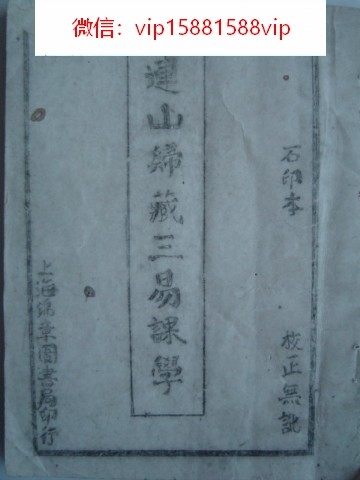 微信：vip15881588vip
石印本
校正無訛
連山歸藏三易課學
上海錦章圖書局印行